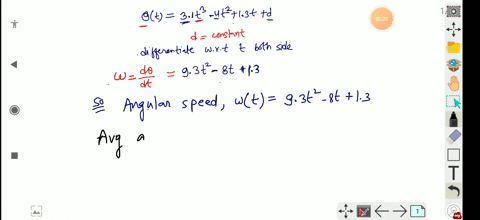 θ(t) = 3.1t³ - 4t² + 1.3t + d
d = constant
differentiate w.r.t t both side
ω = dθ/dt = 9.3t² - 8t + 1.3
so Angular speed, ω(t) = 9.3t² - 8t + 1.3
Avg a